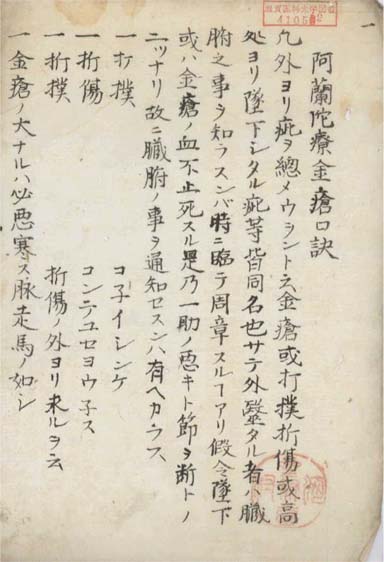 阿蘭陀療金瘡口訣
凡外ヨリ疵ヲ總メウラント云金瘡或打撲折傷或高
処ヨリ墜下シタル疵等皆同名也サテ外毉タル者ハ臓
腑之事ヲ知ラスンバ時ニ臨テ周章スルヿアリ假令墜下
或ハ金瘡ノ血不止死スル是乃一助ノ悪キト節ヲ断トノ
二ツナリ故ニ臓腑ノ事ヲ通知セスンハ有ヘカラス
一打撲 コ子イシンケ
一折傷 コンテユセヨウ子ス
一折撲 折傷ノ外ヨリ来ルヲ云
一金瘡ノ大ナルハ必悪寒ス脉走馬ノ如シ